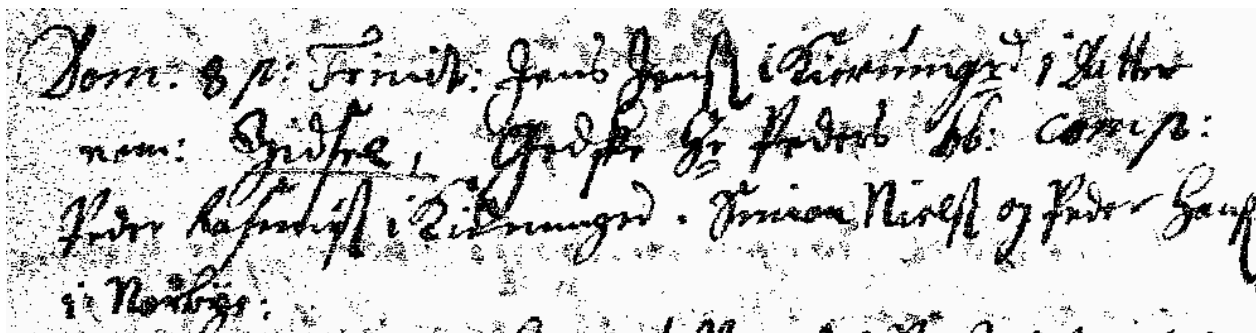 Dom. 8 p: Trinit: Jens Jenss i Kierünnger 1 Datter
nom: Sidsel, Giedske Hr Peders bb: comp:
Peder Rasmuss i Kierunnger. Simon Nielss og Peder Hanss
i Norbye: